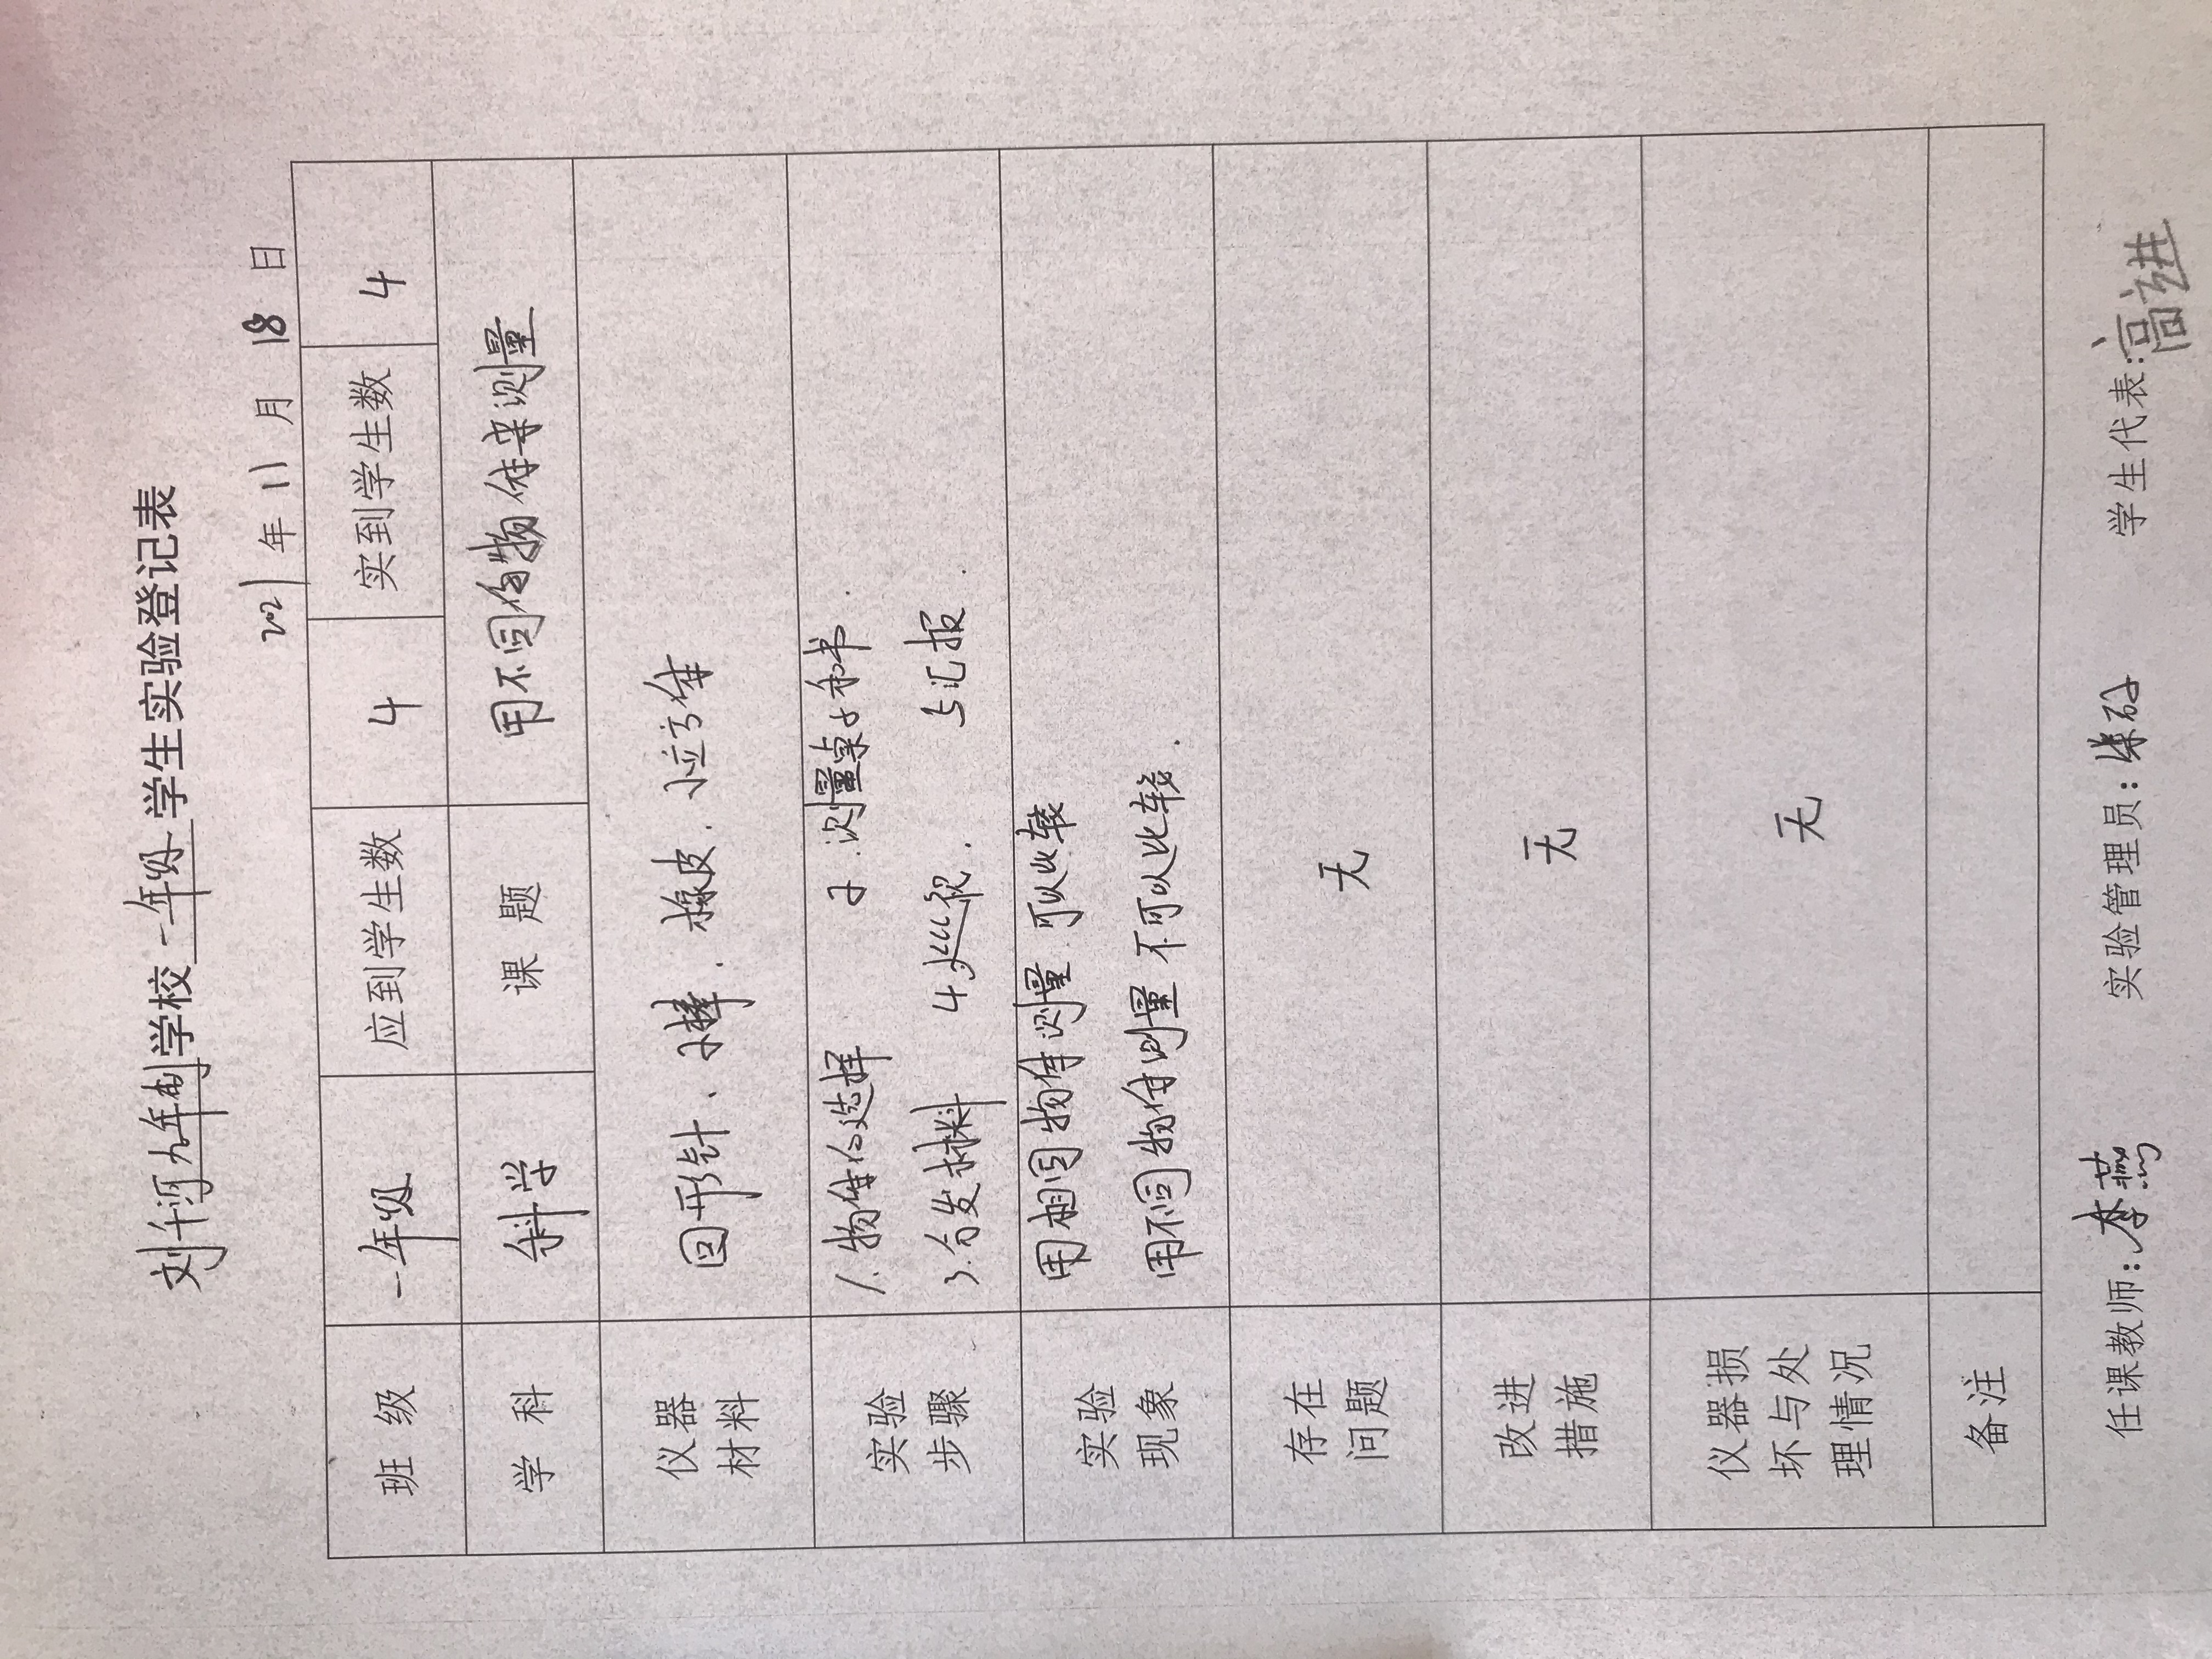 刘千河九年制学校 一年级 学生实验登记表
2021年11月18日
班级 一年级 应到学生数 4 实到学生数 4
学科 科学 课题 用不同的物体来测量
仪器材料 回形针、小棒、橡皮、小立方体
实验步骤 1.物体的选择 2.测量桌子和书.
3.分发材料 4巡视. 5汇报.
实验现象 用相同物体测量 可以比较
用不同物体测量 不可以比较.
存在问题 无
改进措施 无
仪器损坏与处理情况 无
备注
任课教师:李燕 实验管理员: 学生代表:高进